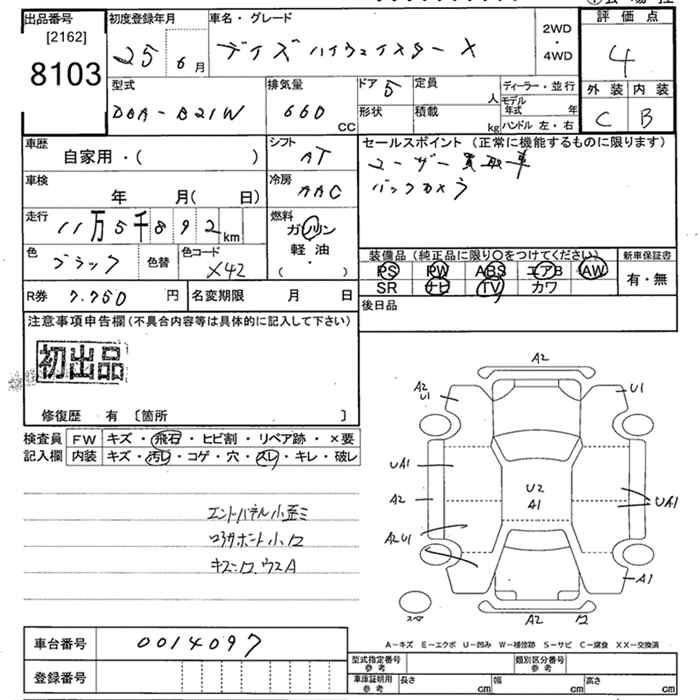 出品番号 [2162] 8103
初度登録年月 25 6月
車名・グレード デイズ ハイウェイスター X
2WD・4WD
評価点 4
外装 内装
C B
型式 DBA-B21W
排気量 660 CC
ドア 5 形状
定員 人
積載 kg
ディーラー・並行
モデル年式 年
ハンドル 左・右
車歴 自家用・( )
シフト AT
セールスポイント (正常に機能するものに限ります)
ユーザー買取車
バックカメラ
車検 年 月( 日)
冷房 AAC
走行 11万5千892km
燃料 ガソリン 軽油 ・( )
色 ブラック 色替 色コード X42
装備品 (純正品に限り○をつけてください)
PS PW ABS エアB AW
SR ナビ TV カワ
新車保証書 有・無
R券 7.750 円 名変期限 月 日
後日品
注意事項申告欄(不具合内容等は具体的に記入して下さい)
初出品
修復歴 有 〔箇所 〕
検査員記入欄
FW キズ・飛石・ヒビ割・リペア跡・×要
内装 キズ・汚レ・コゲ・穴・スレ・キレ・破レ
エントパネル小歪ミ
コアサポート小ワ
キズ、ワ、ウスA
A2
A2 U1
U1
UA1
A2
U2 A1
UA1
A2U1
A1
スペア
A2 ワ
A-キズ E-エクボ U-凹み W-補修跡 S-サビ C-腐食 XX-交換済
車台番号 0014097
登録番号
型式指定番号 参考
類別区分番号 参考
車庫証明用 参考 長さ cm 幅 cm 高さ cm